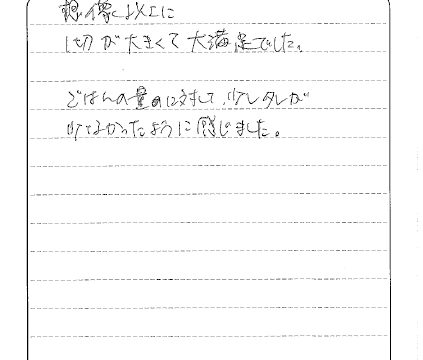 想像以上に
1切が大きくて大満足でした。
ごはんの量に対して、少しタレが
少なかったように感じました。